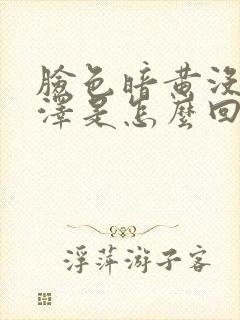 臉色暗黃沒
澤是怎麼回
浮萍游子客